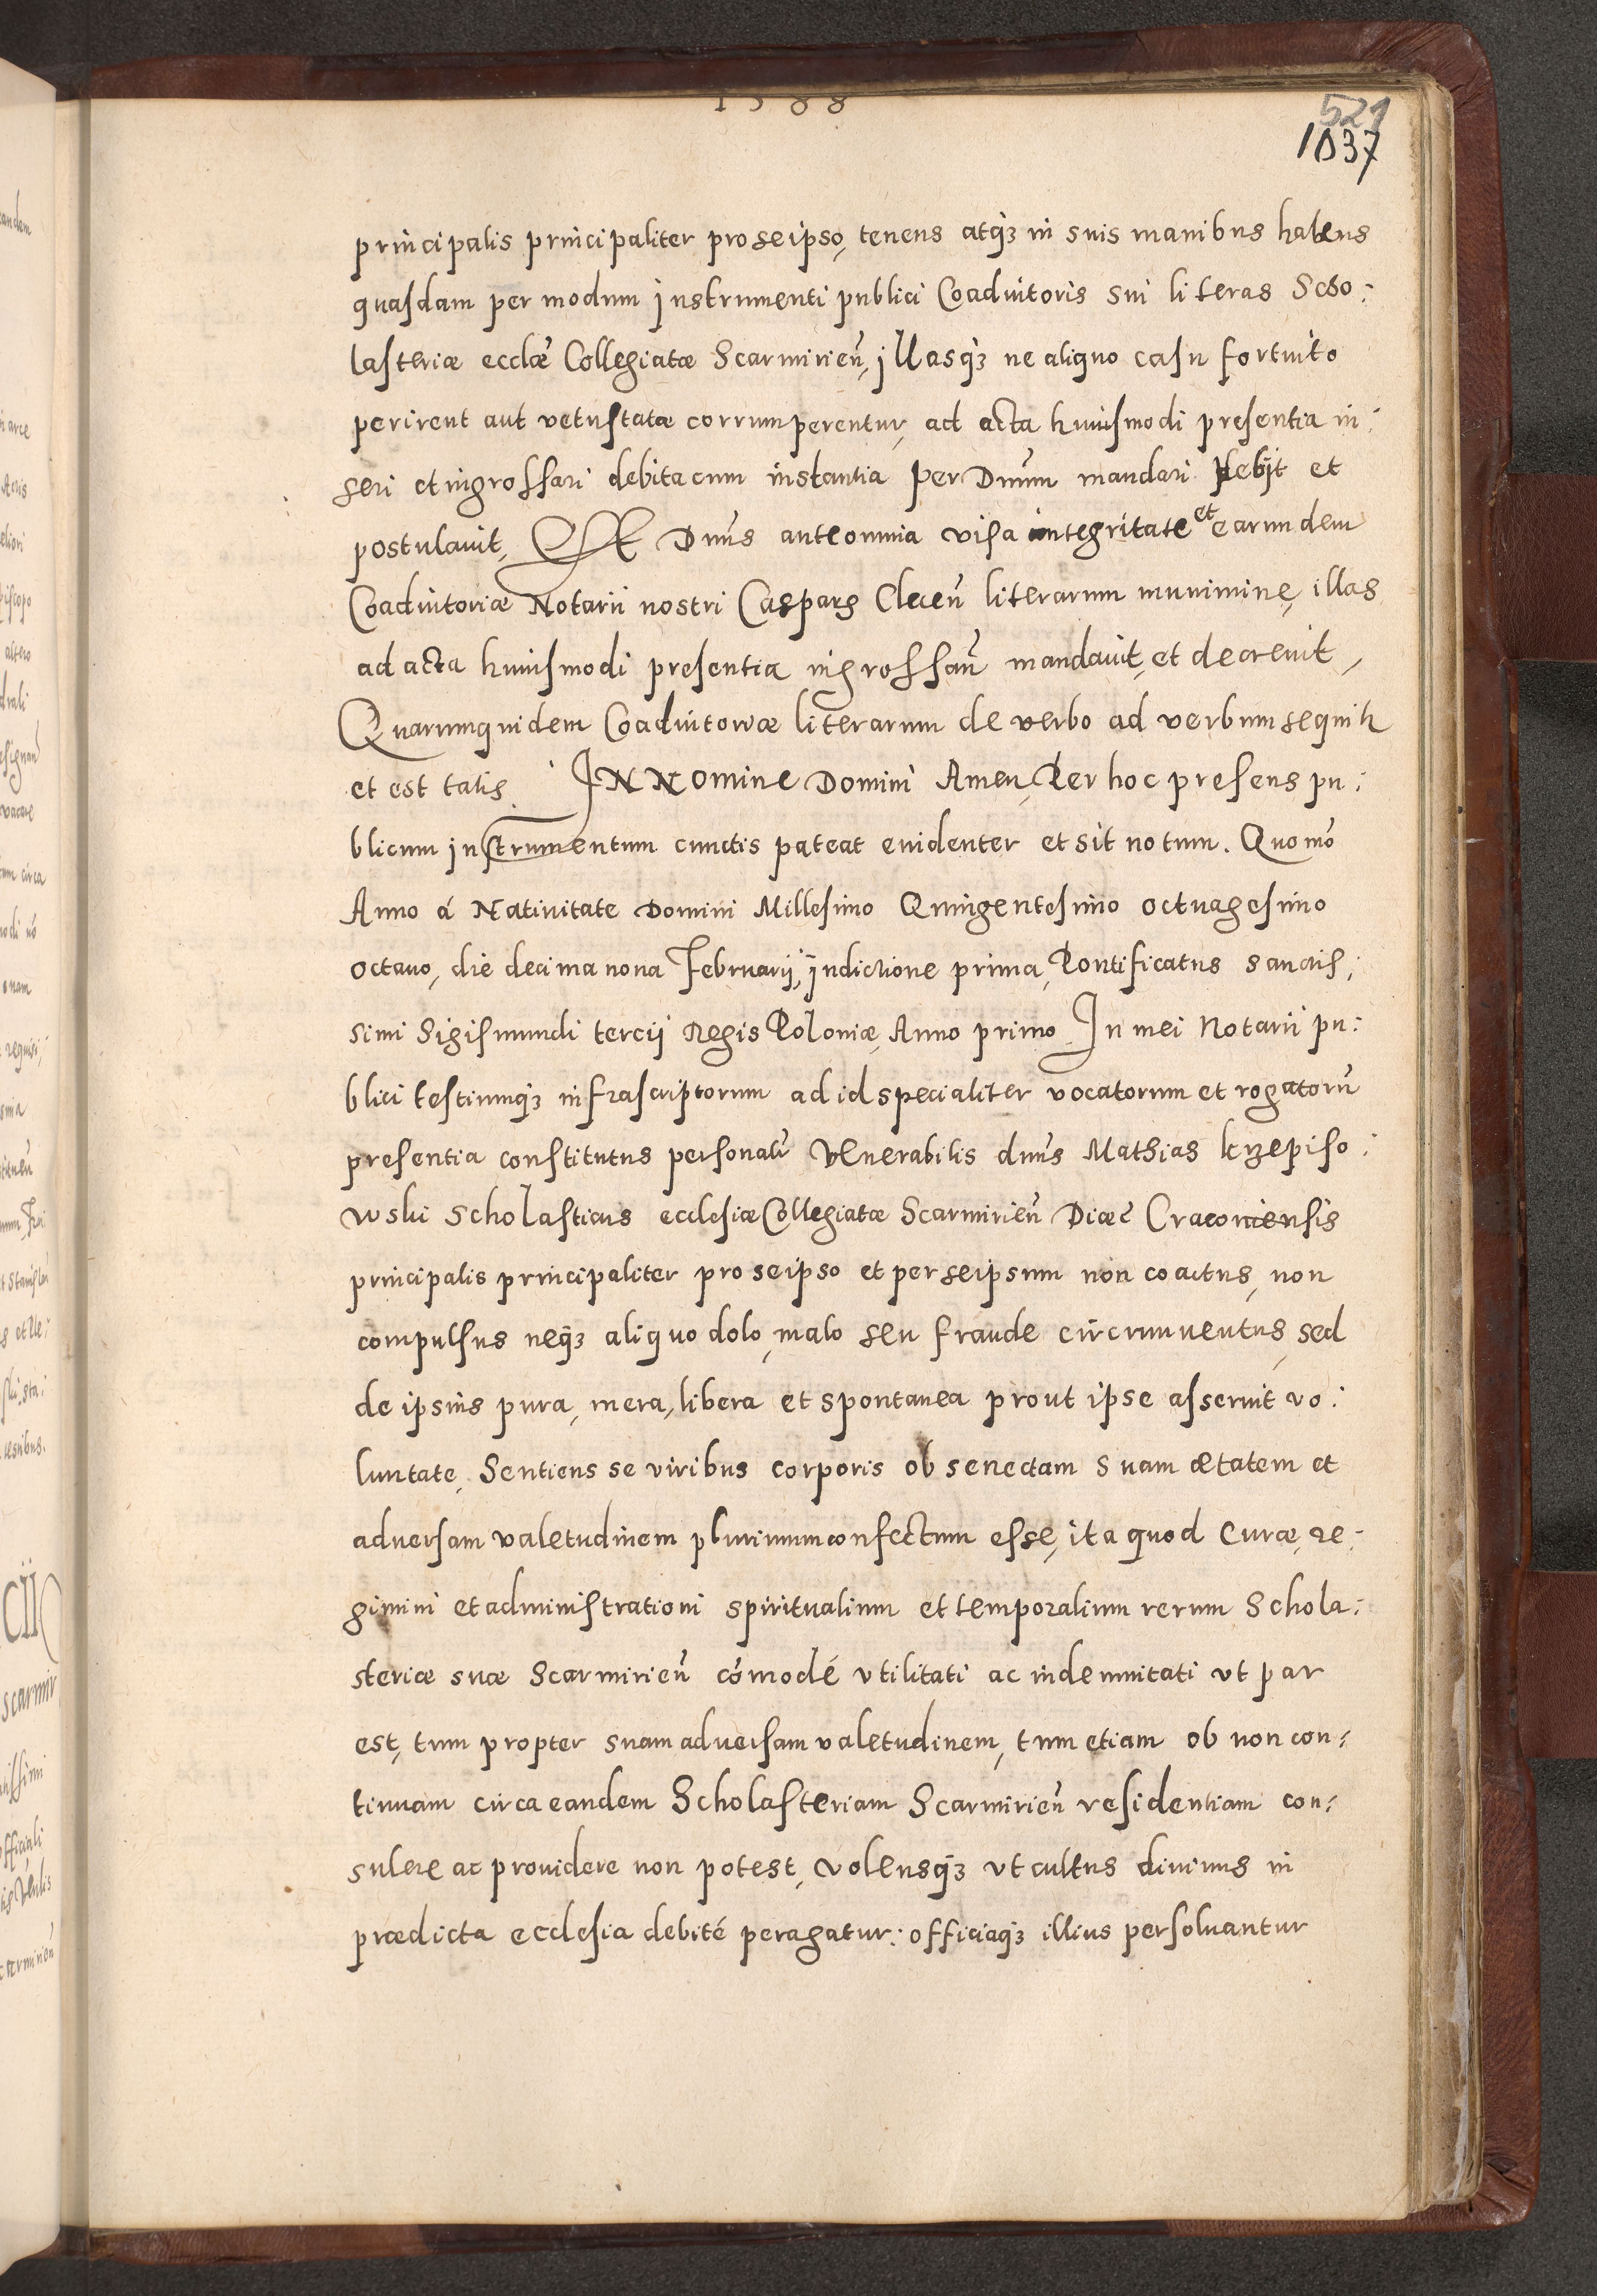 1588
521
1037
principalis principaliter pro seipso, tenens atq3 in suis manibus habens
quasdam per modum instrumenti publici Coadiutoris sui literas Scho:
lasteriæ ecclæ Collegiatæ Scarmirień, illasq3 ne aliquo casu fortuito
perirent aut vetustatæ corrumperentur, ad acta huiusmodi presentia in:
seri et ingrossari debita cum instantia per Dnum mandari petijt et
postulavit, Et Dnus ante omnia visa integritate et earundem
Coadiutoriæ Notarii nostri Caspars Clecen̄ literarum munimine, illas
ad acta huiusmodi presentia ingrossan̄ mandauit, et decreuit,
Quarumquidem Coadiutoriæ literarum de verbo ad verbum sequitr
et est talis. IN Nomine Domini Amen, Per hoc presens pu:
blicum instrumentum cunctis pateat euidenter et sit notum. Quomo
Anno á Natiuitate Domini Millesimo Quingentesimo octuagesimo
octauo, die decima nona Februarij, indictione prima, Pontificatus sanctis:
simi Sigismundi tercij Regis Poloniæ, Anno primo. In mei Notarii pu:
blici testiumq3 infrascriptorum ad id specialiter vocatorum et rogatorū
presentia constitutus personalr Venerabilis dnus Mathias krzepiso:
wski Scholasticus ecclesiæ Collegiatæ Scarmirień Dioec Cracouiensis
principalis principaliter pro seipso et per seipsum non coactus, non
compulsus neq3 aliquo dolo, malo seu fraude circumuentus, sed
de ipsius pura, mera, libera et spontanea prout ipse asseruit vo:
luntate, Sentiens se viribus corporis ob senectam suam ætatem et
aduersam valetudinem plurimum confectum esse, ita quod Curæ, re:
gimini et administrationi spiritualium et temporalium rerum Schola:
steriæ suæ Scarmirień cōmodé vtilitati ac indemnitati vt par
est, tum propter suam aduersam valetudinem, tum etiam ob non con:
tinuam circa eandem Scholasteriam Scarmirień residentiam con:
sulere ac prouidere non potest, volensq3 vt cultus diuinus in
prædicta ecclesia debité peragatur: officiaq3 illius persoluantur